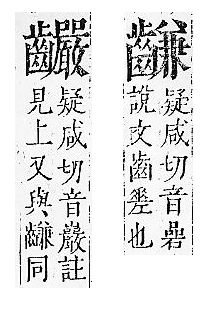 䶢
疑咸切音碞
說文齒差也
疑咸切音巖註
見上又與䶢同